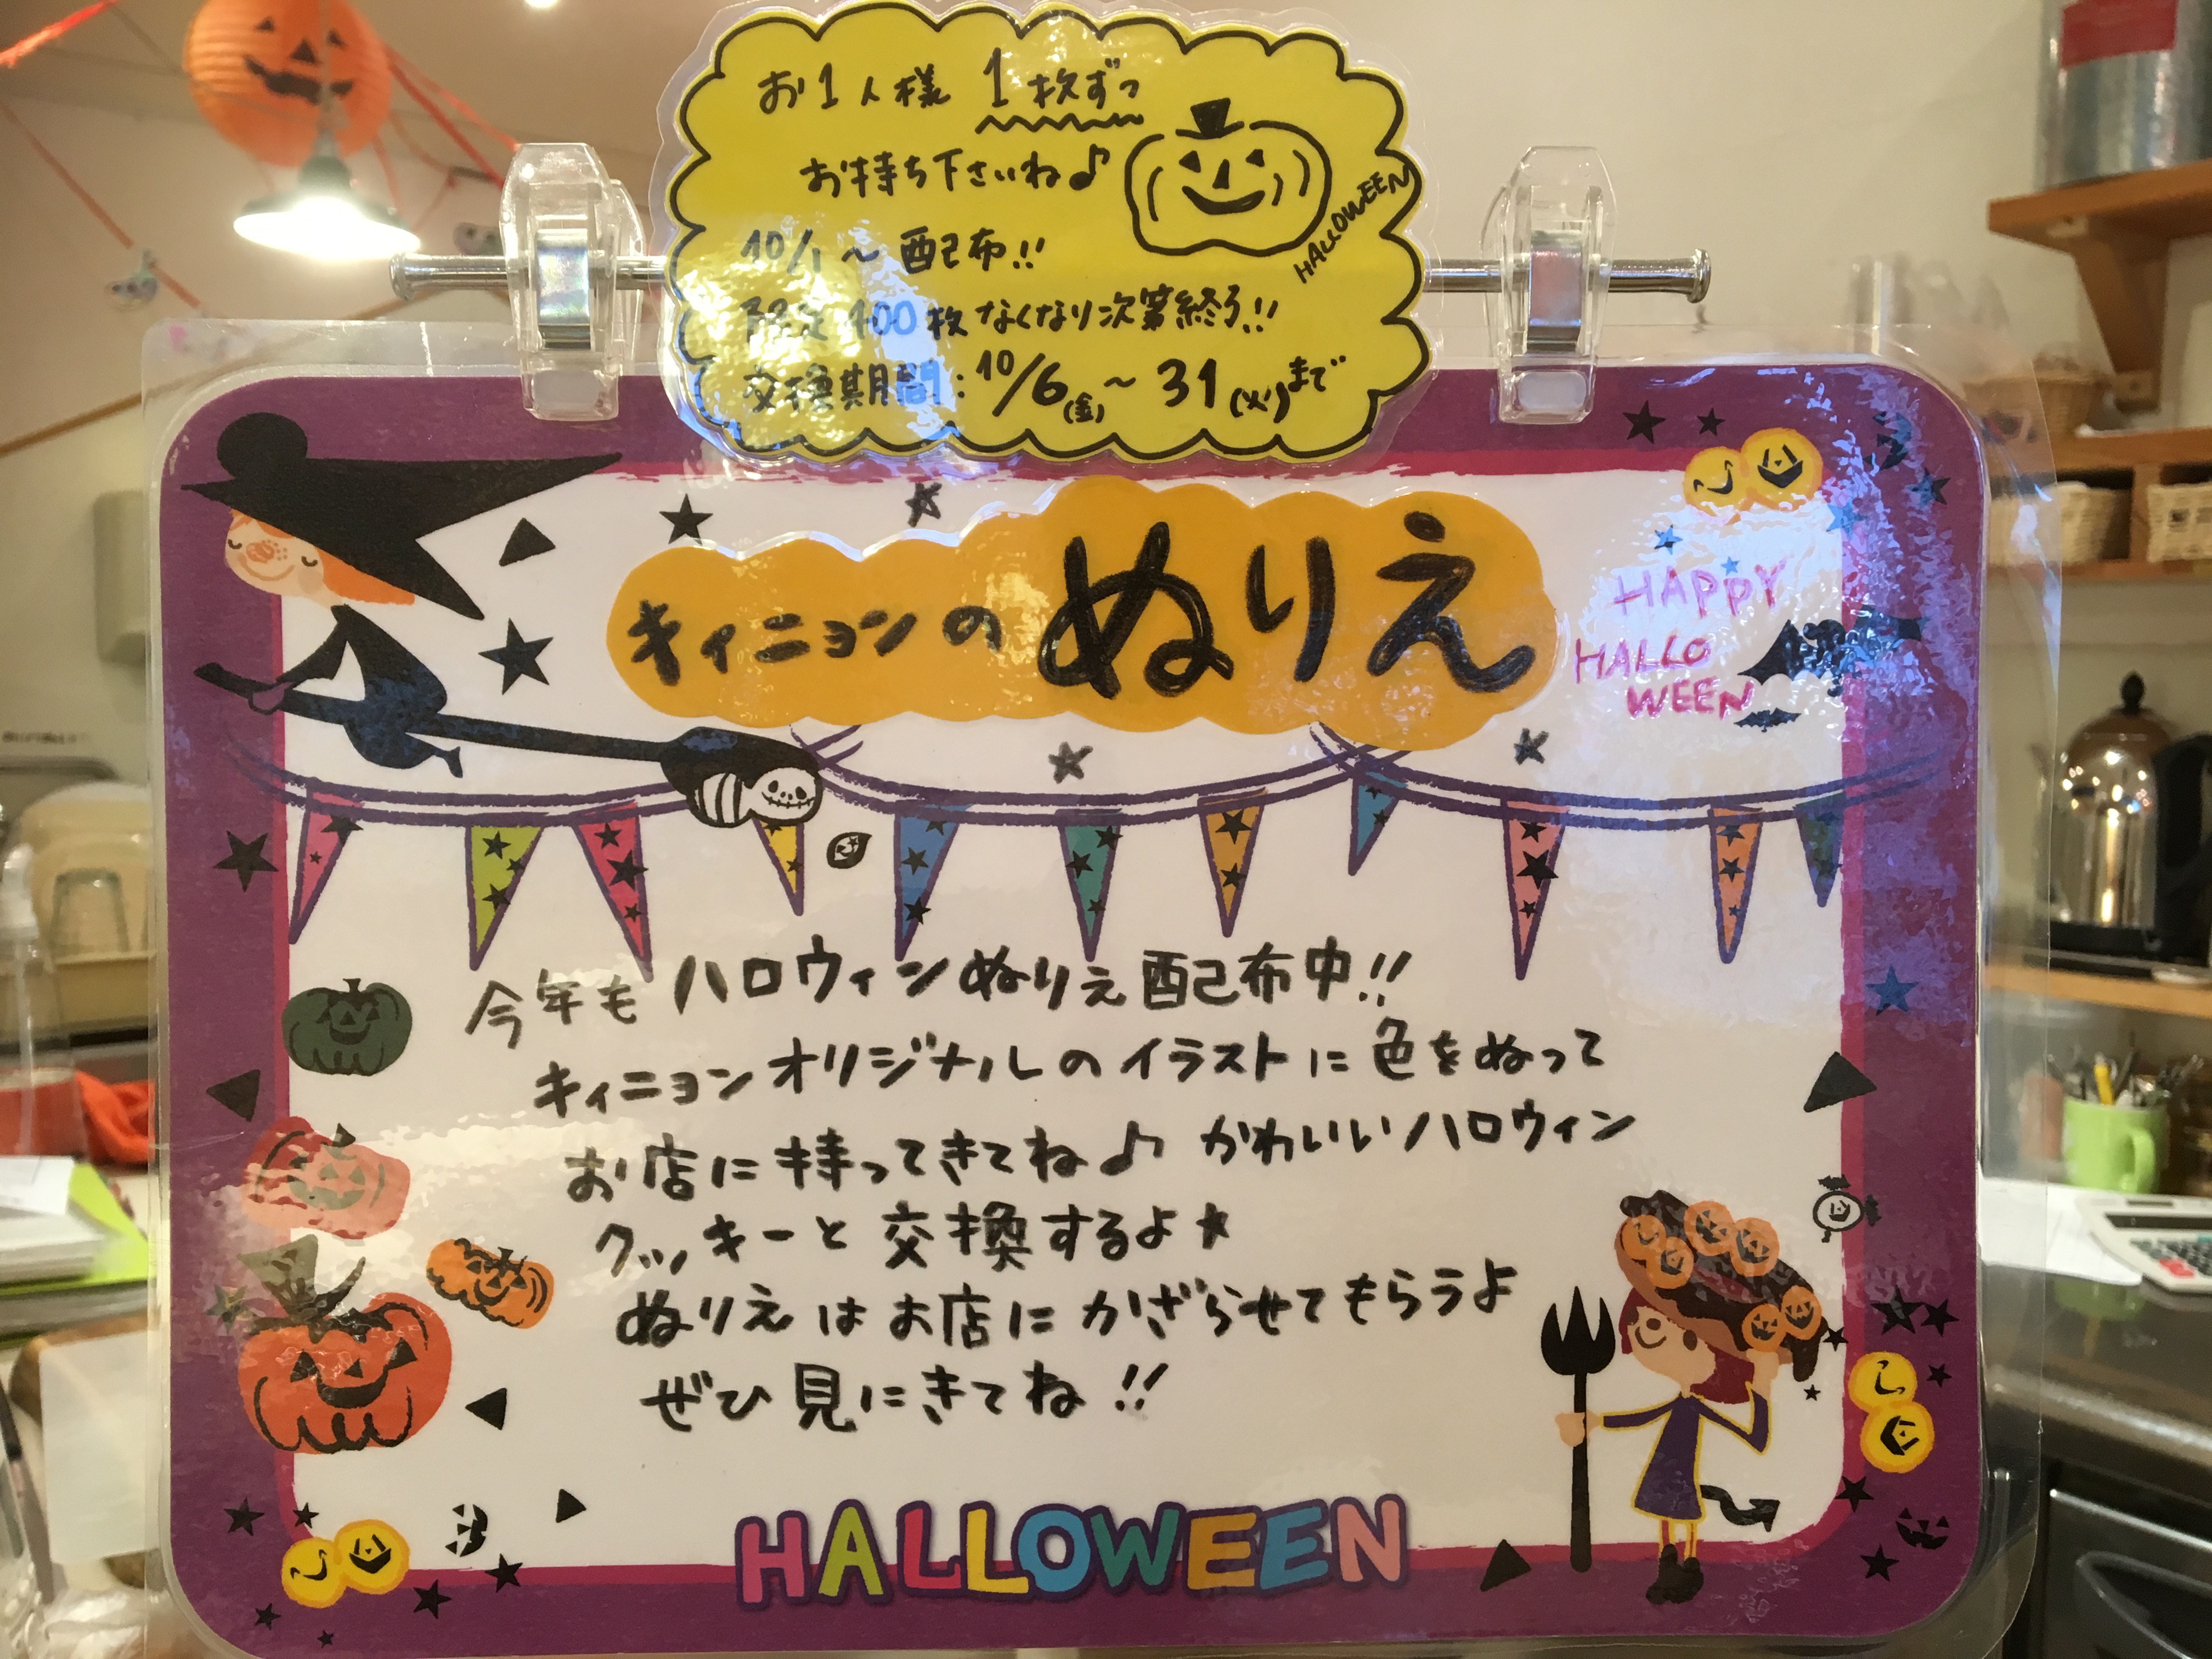 お1人様 1枚ずつ
お持ち下さいね♪
HALLOWEEN
10/1〜配布!!
限定400枚 なくなり次第終了!!
交換期間:10/6(金)〜31(火)まで
キィニョンの ぬりえ
HAPPY
HALLO
WEEN
今年も ハロウィンぬりえ配布中!!
キィニョンオリジナルのイラストに色をぬって
お店に持ってきてね♪ かわいいハロウィン
クッキーと交換するよ★
ぬりえはお店にかざらせてもらうよ
ぜひ見にきてね!!
HALLOWEEN